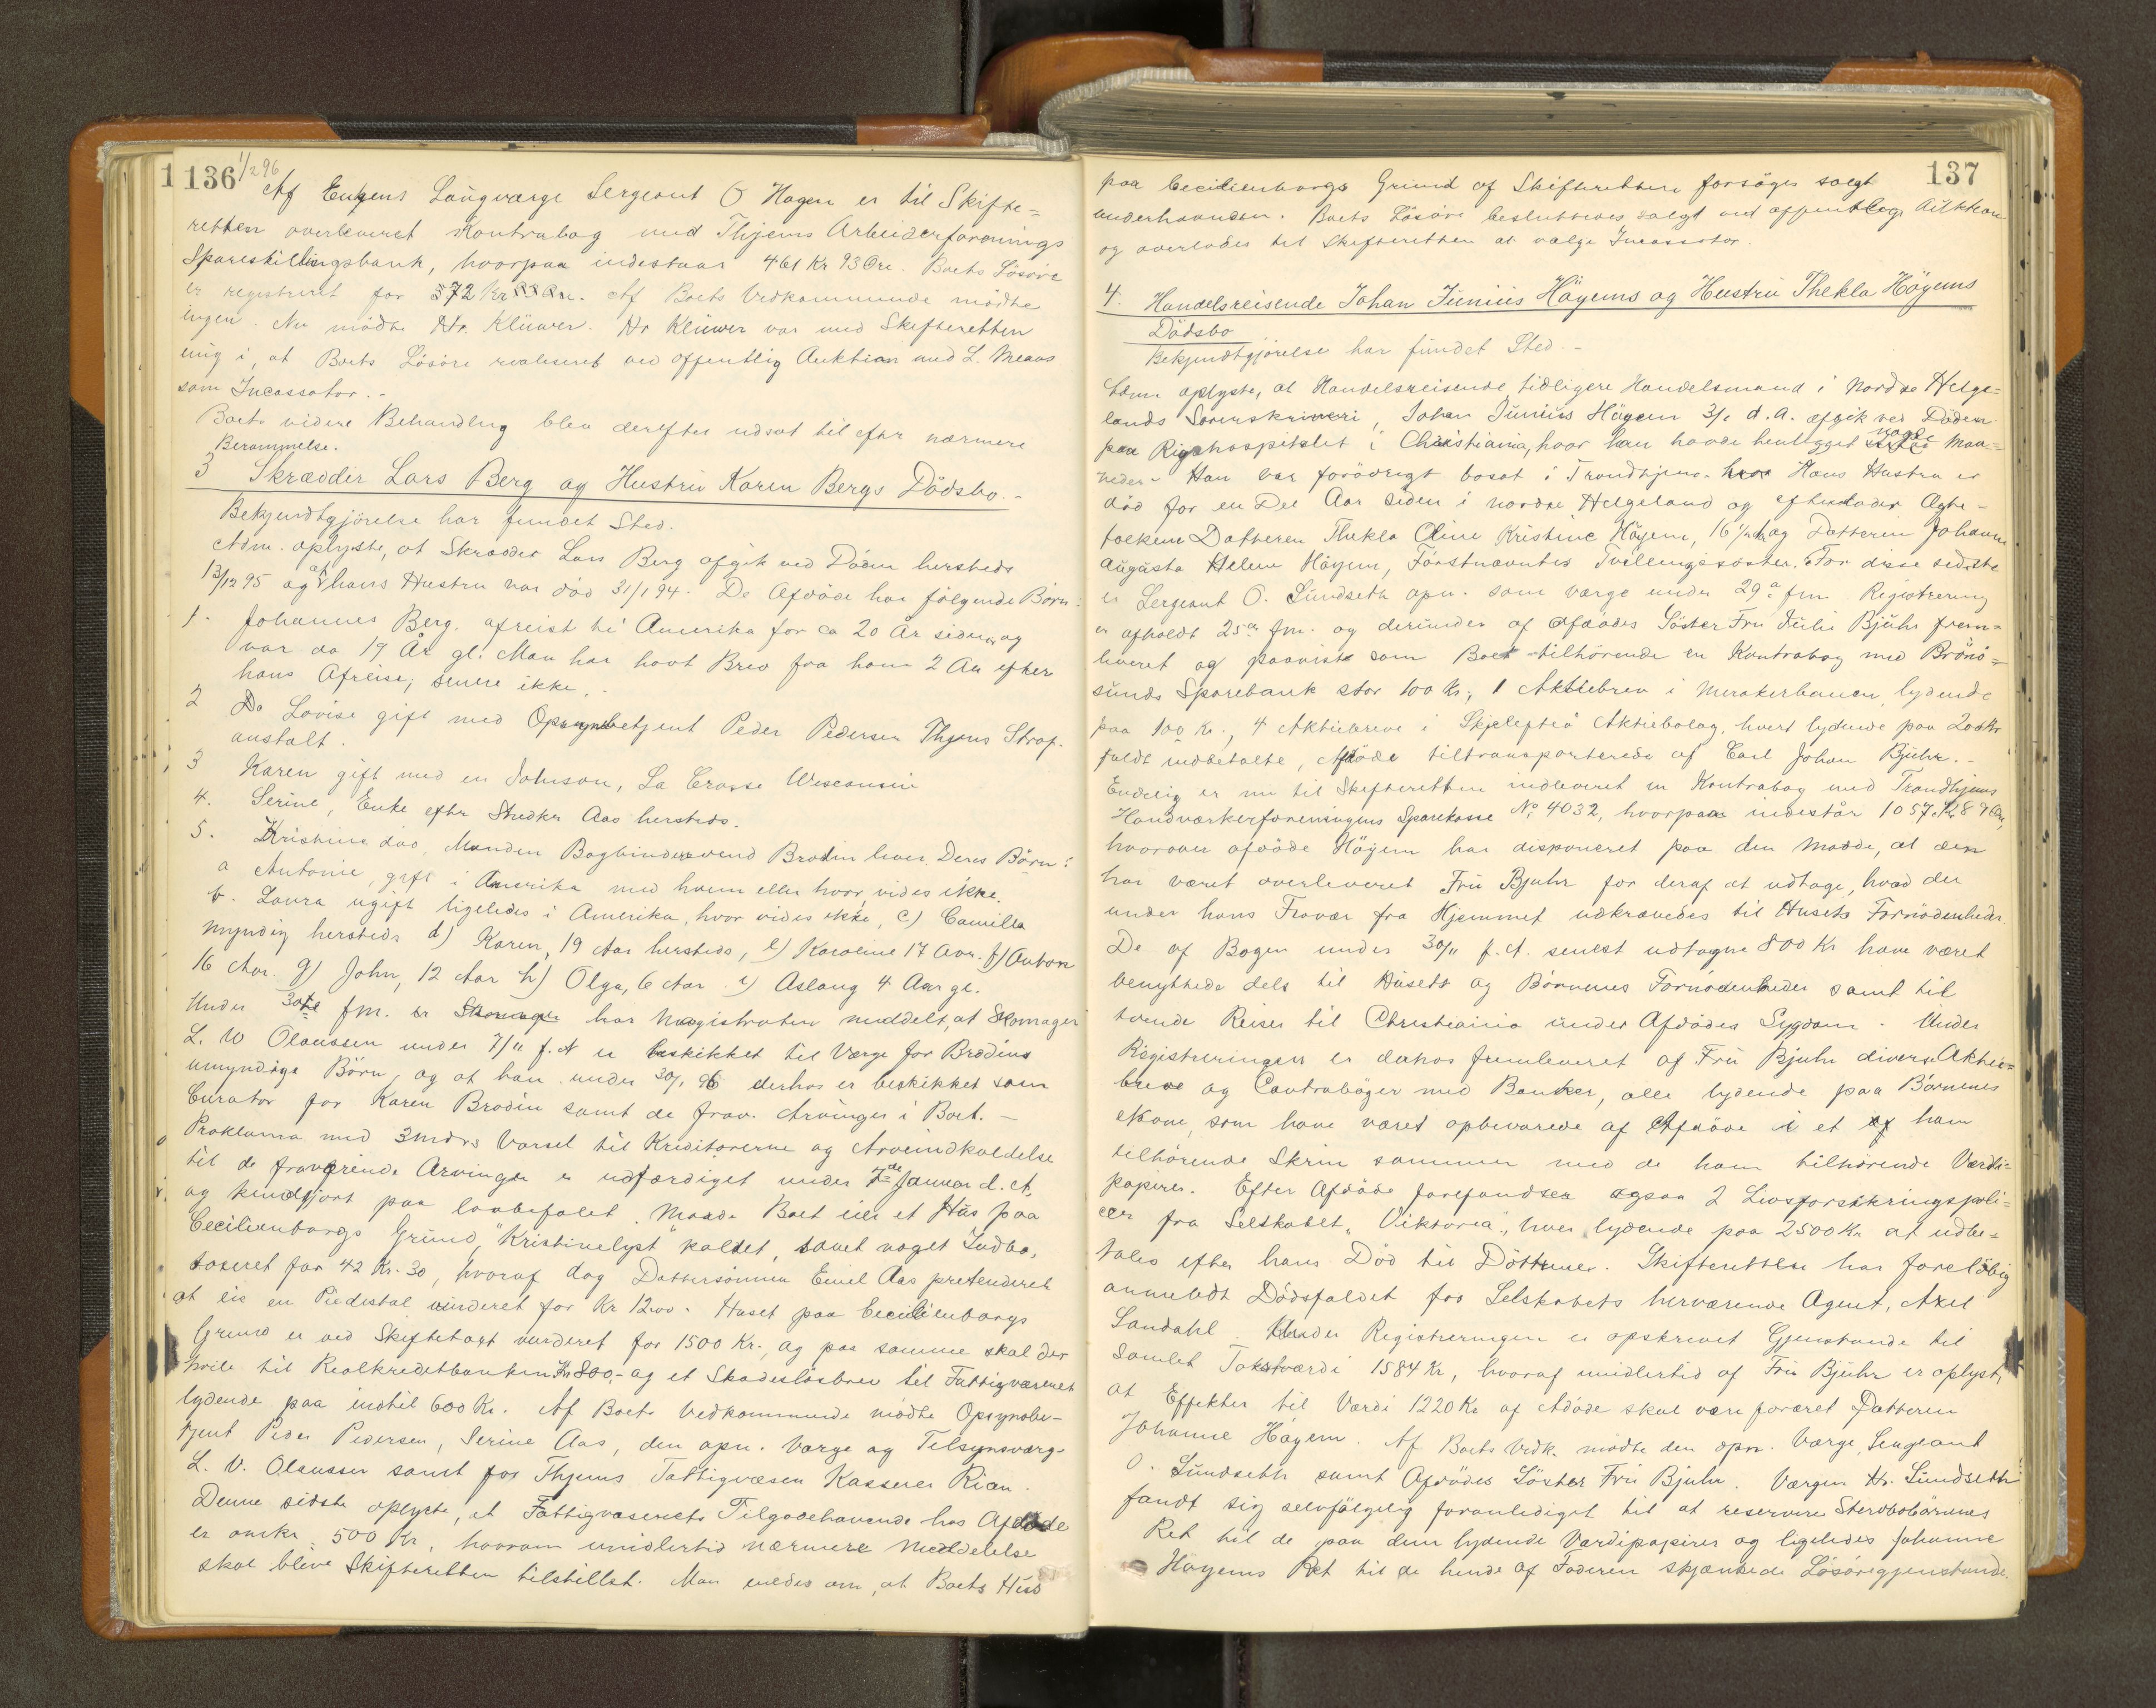 136
1/2 96
Af Enkens Laugværge Sergeant O Hagen er til Skifte=
retten overleveret Kontrabog med Thjems Arbeiderforenings
Spareskillingsbank, hvorpaa indestaar 461 Kr 93 Øre. Boets Lösöre
er registreret for 372 Kr. Af Boets Vedkommende mödte
ingen. Nu mödte Hr. Klüwer. Hr Klüwer var med Skifteretten
enig i, at Boets Lösöre realiseret ved offentlig Auktion med L. Meaas
som Incassator.-
Boets videre Behandling blev derefter udsat til efter nærmere
Berammelse.
3 Skrædder Lars Berg og Hustru Karen Bergs Dödsbo.-
Bekjendtgjörelse har fundet Sted.
Adm. oplyste, at Skrædder Lars Berg afgik ved Döden hersteds
13/12 95 og at hans Hustru var död 31/1 94. De Afdöde har fölgende Börn:
1. Johannes Berg, afreist til Amerika for ca 20 År siden og
var da 19 År gl. Man har havt Brev fra ham 2 Aar efter
hans Afreise, senere ikke.
2 Do Lovise gift med Opsynsbetjent Peder Pedersen Thjems Straf-
anstalt.
3 Karen gift med en Johnson, La Crosse Wisconsin
4. Serine, Enke efter Snedker Aas hersteds.
5. Kristine död, Manden Bogbindersvend Brodin lever. Deres Börn:
a Antonie, gift i Amerika med hvem eller hvor, vides ikke.
b. Laura ugift ligeledes i Amerika, hvor vides ikke, c) Camilla
myndig hersteds d) Karen, 19 Aar hersteds, e) Karoline 17 Aar. f) Anton
16 Aar. g) John, 12 Aar h) Olga, 6 Aar i) Aslaug 4 Aar gl.
Under 30te fm. er Skomager har Magistraten meddelt, at Skomager
L. W Olaussen under 7/11 f. A er beskikket til Værge for Brodins
umyndige Börn, og at han under 30/1 96 derhos er beskikket som
Curator for Karen Brodin samt de frav. Arvinger i Boet.-
Proklama med 3 mdrs Varsel til Kreditorerne og Arveindkaldelse
til de fraværende Arvinger er udfærdiget under 7de Januar d. A,
og kundgjort paa lovbefalet Maade. Boet eier et Hus paa
Cecilienborgs Grund, "Kristinelyst" kaldet, samt noget Indbo,
taxeret for 42 Kr. 30, hvoraf dog Dattersönnen Emil Aas prætenderet
at eie en Piedestal vurderet for Kr 12.00. Huset paa Cecilienborgs
Grund er ved Skiftetaxt vurderet for 1500 Kr., og paa samme skal der
hvile til Realkreditbanken Kr 800,- og et Skadeslösbrev til Fattigvæsenet
lydende paa indtil 600 Kr. Af Boets Vedkommende mödte Opsynsbe-
tjent Peder Pedersen, Serine Aas, den opn. Værge og Tilsynsværge
L. V. Olaussen samt for Thjems Fattigvæsen Kasserer Rian.
Denne sidste oplyste, at Fattigvæsenets Tilgodehavende hos Afdöde
er omkr. 500 Kr, hvorom imidlertid nærmere Meddelelse
skal blive Skifteretten tilstillet. Man enedes om, at Boets Hus
137
paa Cecilienborgs Grund af Skifteretten forsöges solgt
underhaanden. Boets Lösöre besluttedes solgt ved offentlig Auktion
og overlodes til Skifteretten at vælge Incassator.
4. Handelsreisende Johan Junius Höyems og Hustru Thekla Höyems
Dödsbo
Bekjendtgjörelse har fundet Sted.-
Adm oplyste, at Handelsreisende tidligere Handelsmand i Nordre Helge=
lands Sorenskriveri, Johan Junius Höyem 3/1 d. A. afgik ved Döden
paa Rigshospitalet i Christiania, hvor han havde henligget nogle Maa=
neder. Han var forövrigt bosat i Trondhjem. Hans Hustru er
död for en Del Aar siden i nordre Helgeland og efterlader Ægte-
folkene Datteren Thekla Oline Kristine Höyem, 16 1/2 og Datteren Johanne
Augusta Helene Höyem, Förstnævntes Tvillingesöster. For disse sidste
er Sergeant O. Sundseth opn. som Værge under 29de fm. Registrering
er afholdt 25de fm. og derunder af Afdödes Söster Fru Julie Bjuhr frem=
leveret og paavist som Boet tilhörende en Kontrabog med Brönö=
sunds Sparebank stor 100 Kr, 1 Aktiebrev i Merakerbanen, lydende
paa 100 Kr., 4 Aktiebreve i Skjellefteå Aktiebolag, hvert lydende paa 200 Kr
fuldt indbetalte, Afdöde tiltransporterede af Carl Johan Bjuhr.-
Endelig er nu til Skifteretten indleveret en Kontrabog med Trondhjems
Haandværkerforenings Sparekasse No. 4032, hvorpaa indestår 1057 Kr 89 Öre,
hvorover afdöde Höyem har disponeret paa den Maade, at den
har været overleveret Fru Bjuhr for deraf at udtage, hvad der
under hans Fravær fra Hjemmet udkrævedes til Husets Fornödenheder.
De af Bogen under 30/11 f. A. senest udtagne 800 Kr have været
benyttede dels til Husets og Börnenes Fornödenheder samt til
tvende Reiser til Christiania under Afdödes Sygdom. Under
Registreringen er derhos fremleveret af Fru Bjuhr diverse Aktie=
breve og Contraböger med Banker, alle lydende paa Börnenes
Navne, som have været opbevarede af Afdöde i et af ham
tilhörende Skrin sammen med de ham tilhörende Værdi=
papirer. Efter Afdöde forefandtes ogsaa 2 Livsforsikringspoli=
cer fra Selskabet "Viktoria", hver lydende paa 2500 Kr at udbe=
tales efter hans Död til Döttrene. Skifteretten har forelöbig
anmeldt Dödsfaldet for Selskabets herværende Agent, Axel
Sandahl. Under Registreringen er opskrevet Gjenstande til
Samlet Takstværdi 1584 Kr, hvoraf imidlertid af Fru Bjuhr er oplyst,
at Effekter til Værdi 1220 Kr af Afdöde skal være foræret Datteren
Johanne Höyem. Af Boets Vedk. mödte den opn. Værge, Sergeant
O. Sundseth samt Afdödes Söster Fru Bjuhr. Værgen Hr. Sundseth
fandt sig selvfölgelig foranlediget til at reservere Stervbobörnenes
Ret til de paa dem lydende Værdipapirer og ligeledes Johanne
Höyems Ret til de hende af Faderen skjænkede Lösöregjenstande.